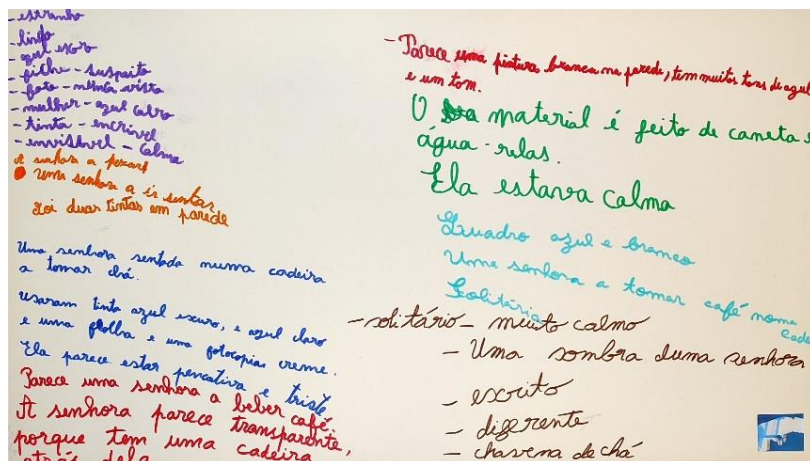 - estranho
- lindo
- azul escro
- fiche - suspeito
- foto - nunca visto
- mulher - azul calro
- tinta - encrivel
- envisível - calma
A senhora a
Uma senhora a ir sentar
Foi duas tintas em parede
Uma senhora sentada numa cadeira
a tomar chá.
usaram tinta azul escuro, e azul claro
e uma folha e uma fotocopia creme.
Ela parece estar pencativa e triste
Parece uma senhora a beber café.
A senhora parece transparente,
porque tem uma cadeira
atrás dela
- Parece uma pintura branca na parede, tem muitos tons de azul
e um tom.
O material é feito de caneta e
água-relas.
Ela estava calma
Quadro azul e branco
Uma senhora a tomar café numa
Solitária
- solitário - muito calmo
- Uma sombra duma senhora
- escrito
- diferente
- chavena de chá